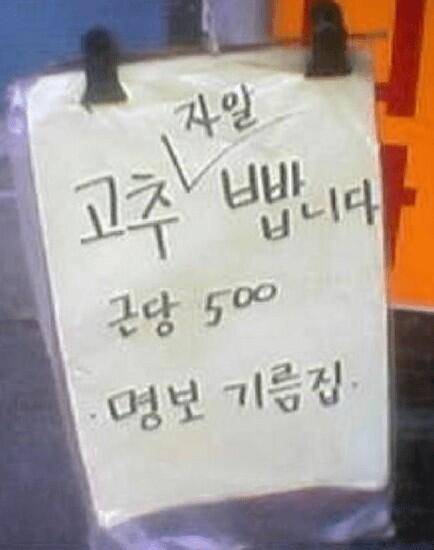 자알
고추 빱니다
근당 500
· 명보 기름집 ·